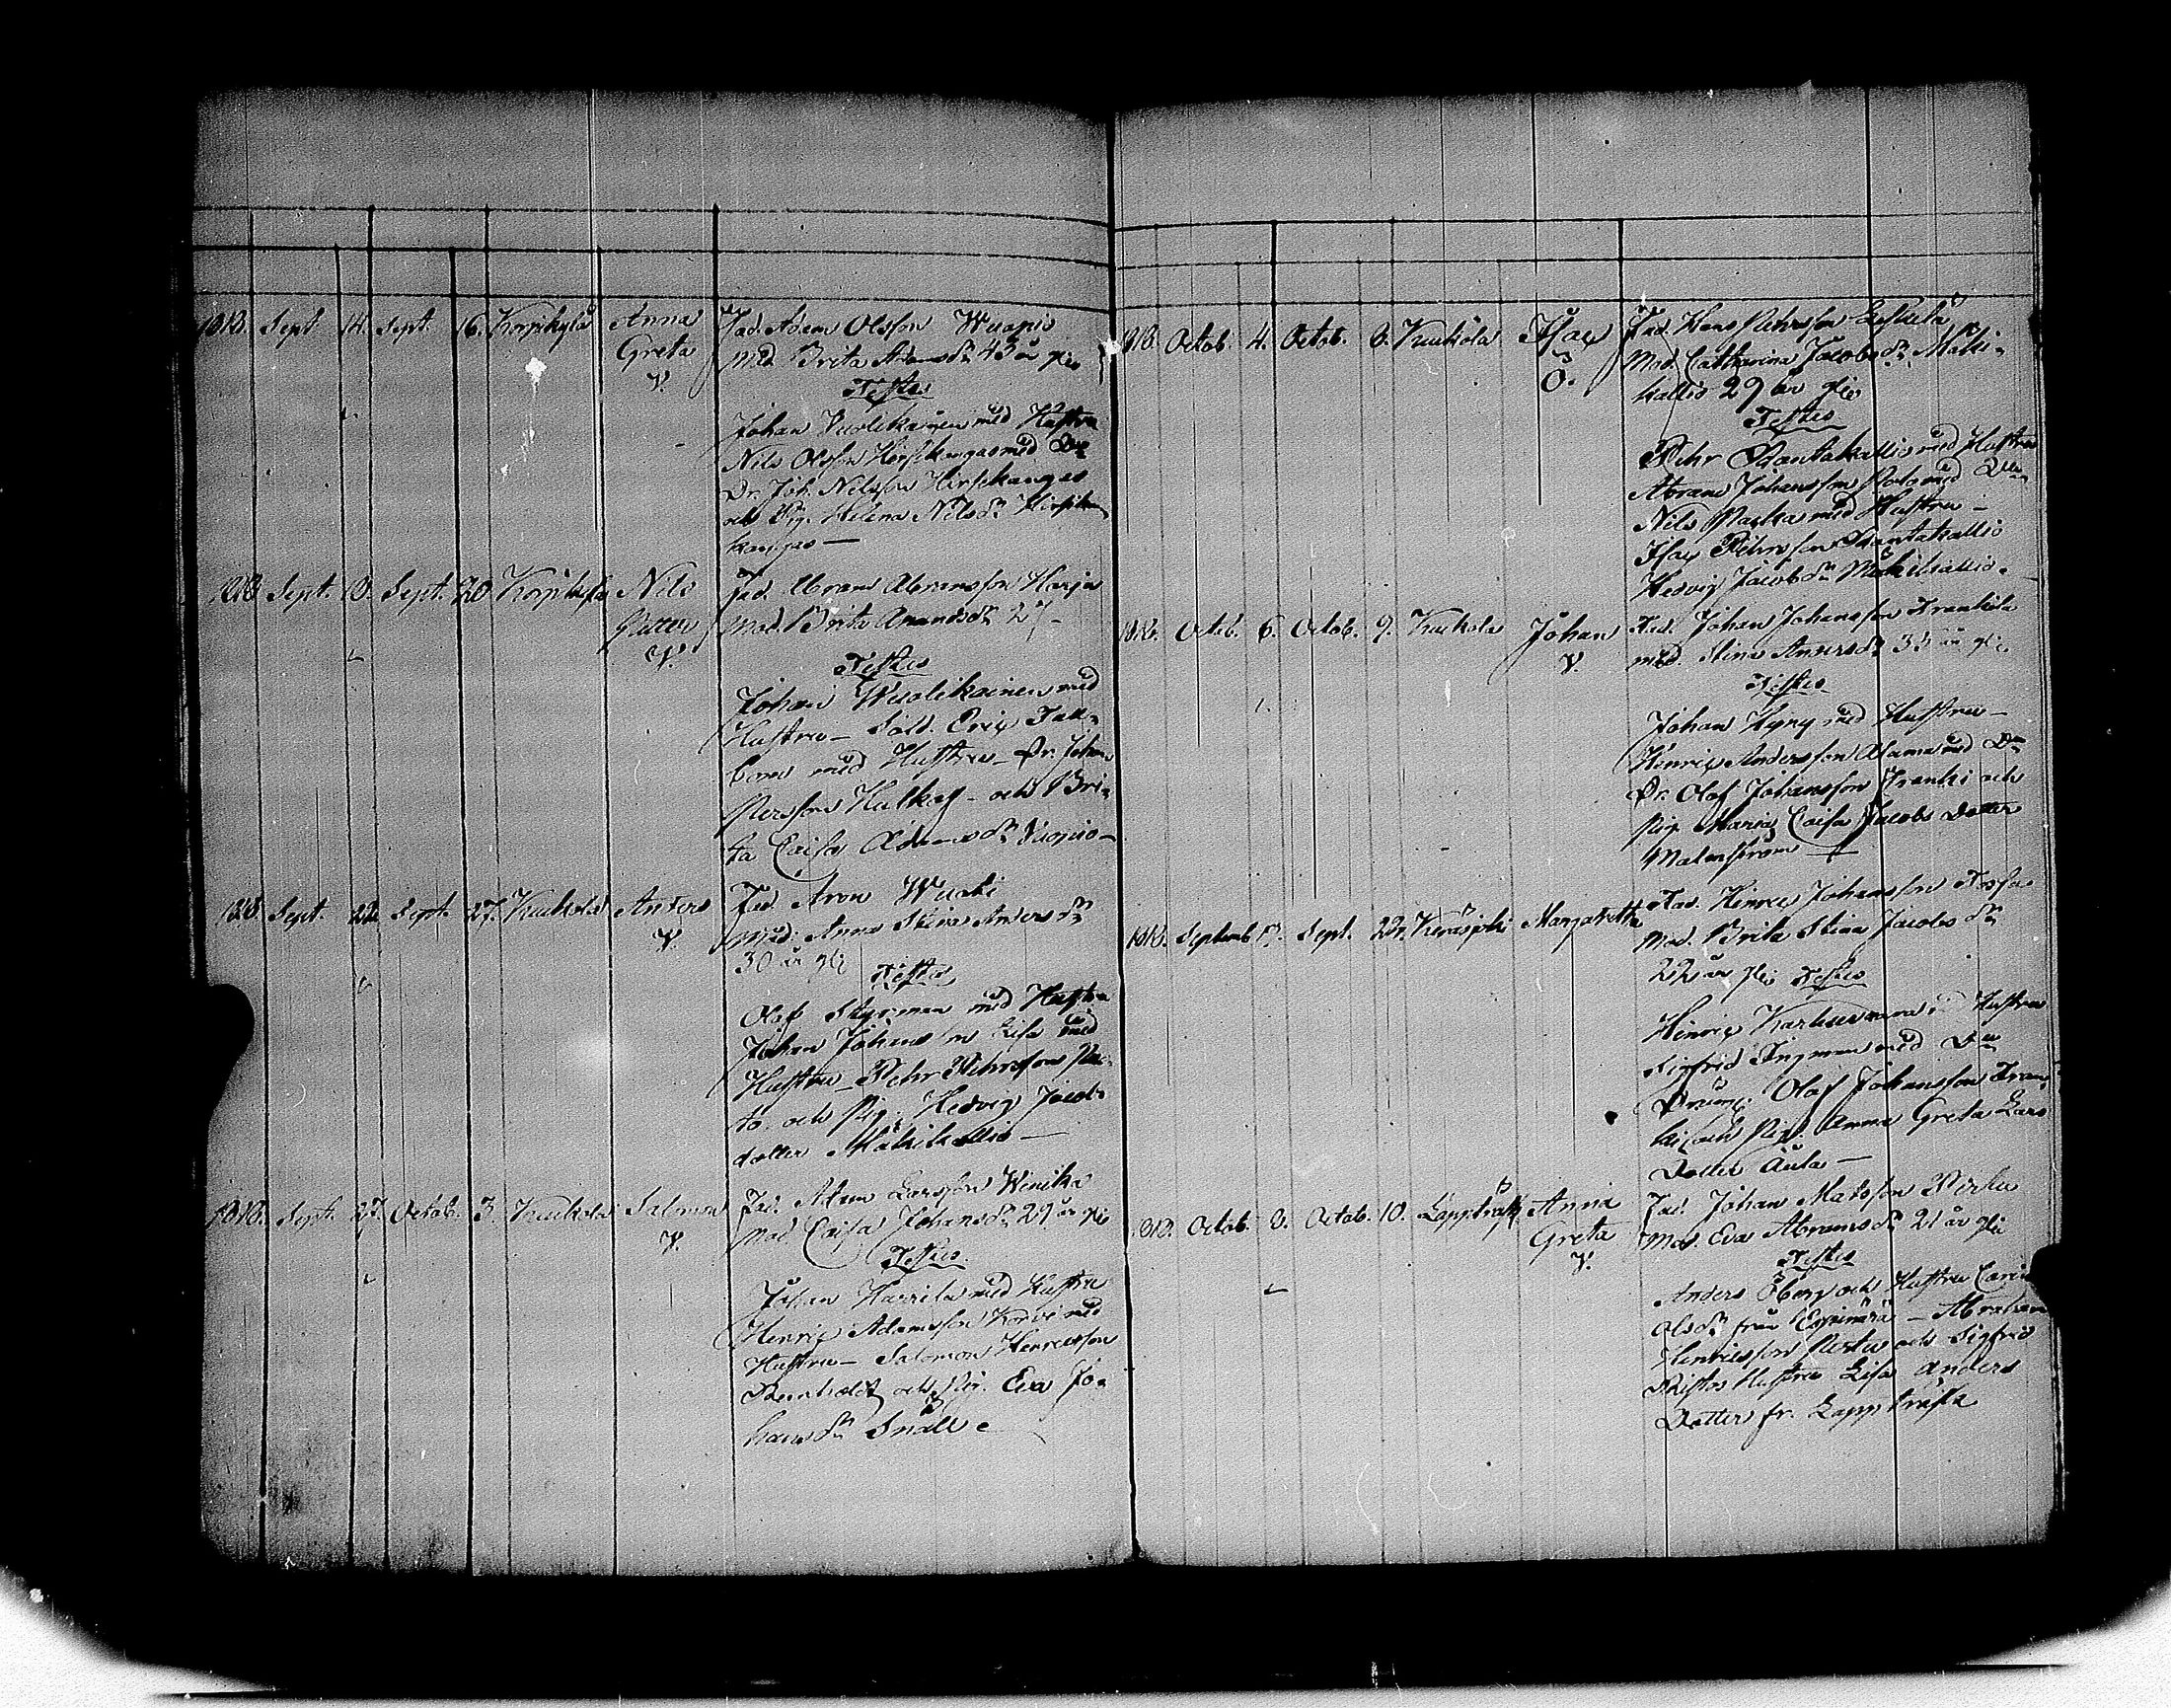 1818. Sept 14. Sept. 16. Korpikylä Anna Fad. Adam Olsson Wuopio
Greta Mod. Brita Adamsdr 43 år gle
V. Testes
Johan Vuolikainen med Hustru
Nils Olsson Hirsikangas med Do
Dr. Joh. Nilsson Hirsikangas
och Pig. Helena Nilsdr Hirsi-
kangas —
1818 Sept. 18. Sept. 20 Korpikylä Nils Fad. Abram Abramsson Harju
Petter Mod. Brita Amundsdr 27 –
V. Testes
Johan Wuolikainen med
Hustru – Sold. Eric
med Hustru – Dr. Johan
Persson – och Bri-
ta Caisa Adamsdr Vuopio –
1818. Sept. 22. Sept. 27. Kuckola Anders Fad. Aron Wuoki
V. Mod. Anna Stina Andersdr
30 år gle Testes
Olof Styrman med Hustru
Johan Johansson Lisa med
Hustru – Pehr Pehrsson
och Pig. Hedvig Jacobs
dotter Mäkikallio —
1818. Sept. 27. Octob. 3. Kuckola Salomon Fad. Adam Larsson Winika
V. Mod Caisa Johansdr 29 år gle
Testes
Johan Harrila med Hustru
Henric Adamsson Korvi med
Hustru – Salomon Henricsson
och Pig. Eva Jo-
hansdr Snäll
1818. Octob. 4. Octob. 6. Kuckola Isac Fad. Hans Pehrsson
O. Mod. Catharina Jacobsdr Mäki-
kallio 29 år gle
Testes
Pehr Santakallio med Hustru
Abram Johansson Polo med Do
Nils med Hustru –
Isac Pehrsson Santakallio
Hedvig Jacobsdr Mäkikallio.
1818. Octob. 6. Octob. 9. Kuckola Johan Fad. Johan Johansson Frankila
V. Mod. Stina Andersdr 33 år gle
Testes
Johan Hyny med Hustru –
Henric Andersson Alama med Do
Dr. Olof Johansson Franki och
Pig. Maria Caisa Jacobs Dotter
Malmström
1818. Septemb Sept. 22. Keräsjoki Margaretha Fad. Henric Johansson
Mod. Brita Stina Jacobsdr
22 år gle Testes
Henric med Hustru
Sigfrid Ingman med Do
Olof Johansson Fran-
ki och Pig. Anna Greta Lars
Dotter Aula —
1818. Octob. 8. Octob. 10. Lappträsk Anna Fad. Johan Matsson Perku
Greta Mod. Eva Abramsdr 21 år gle
V. Testes
Anders Öberg och Hustru Carin
Olsdr från Espinärä – Abraham
Henricsson Perku och Sigfrid
Ristos Hustru Lisa Anders
Dotter fr. Lappträsk